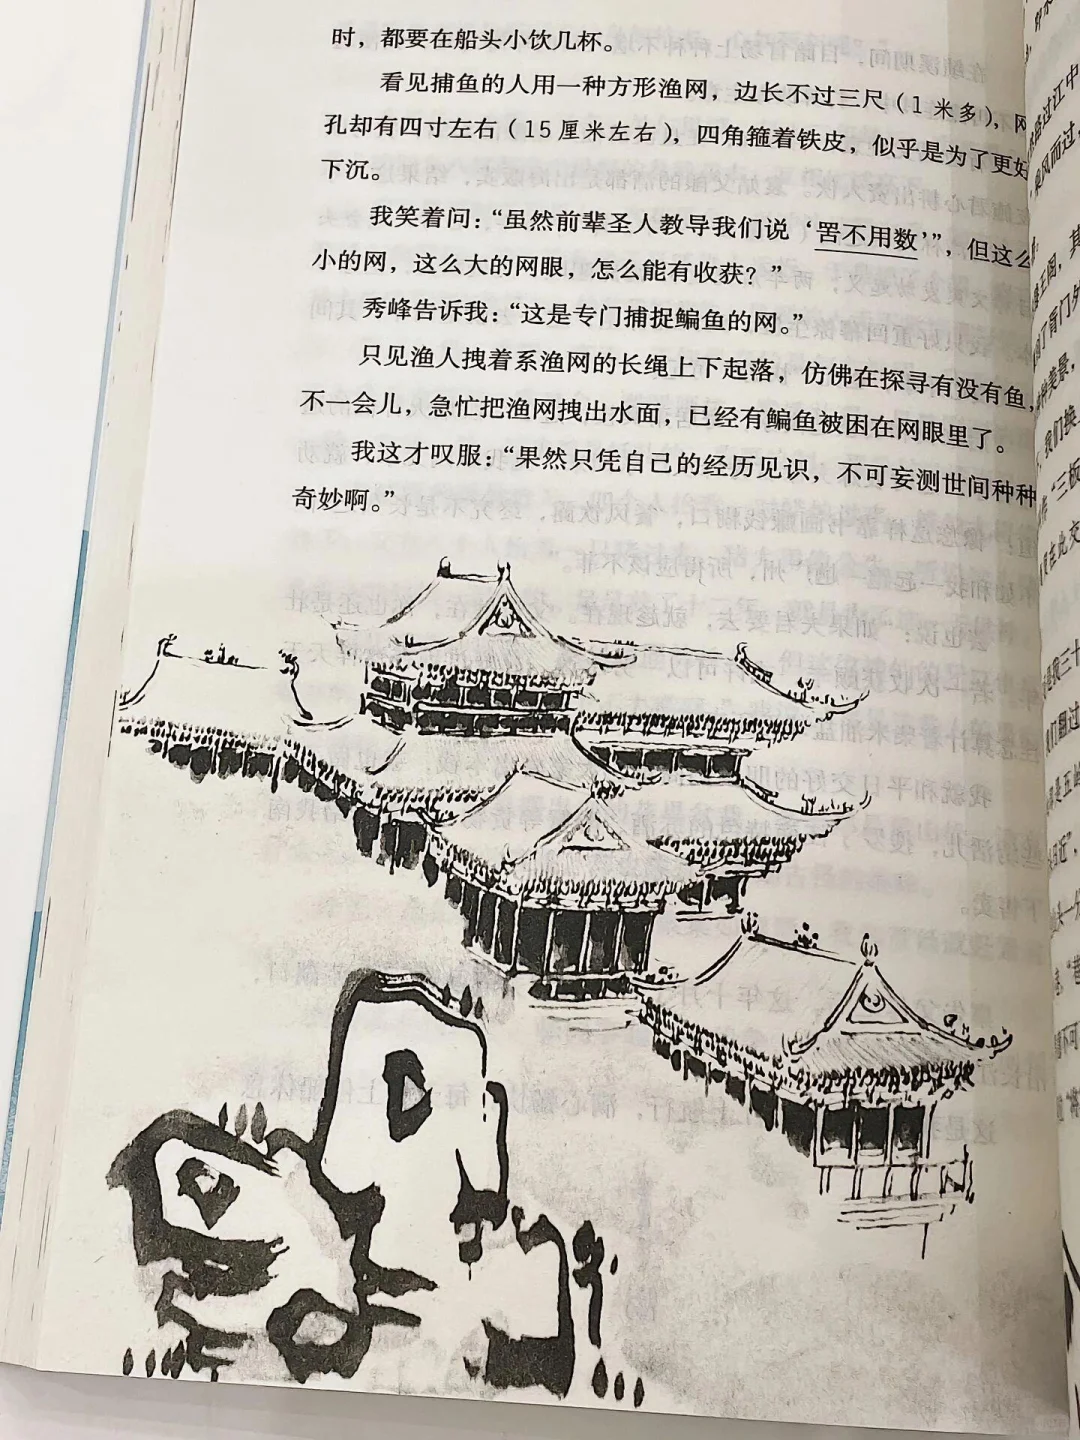 时，都要在船头小饮几杯。
看见捕鱼的人用一种方形渔网，边长不过三尺（1 米多），网
孔却有四寸左右（15 厘米左右），四角箍着铁皮，似乎是为了更好
下沉。
我笑着问：“虽然前辈圣人教导我们说‘罟不用数’”，但这么
小的网，这么大的网眼，怎么能有收获？”
秀峰告诉我：“这是专门捕捉鳊鱼的网。”
只见渔人拽着系渔网的长绳上下起落，仿佛在探寻有没有鱼，
不一会儿，急忙把渔网拽出水面，已经有鳊鱼被困在网眼里了。
我这才叹服：“果然只凭自己的经历见识，不可妄测世间种种
奇妙啊。”
过江中
旋风而过，
王阁，其
了肯门外
种美景，
我们换
“三板
在此交
我三十
们翻过
是五岭